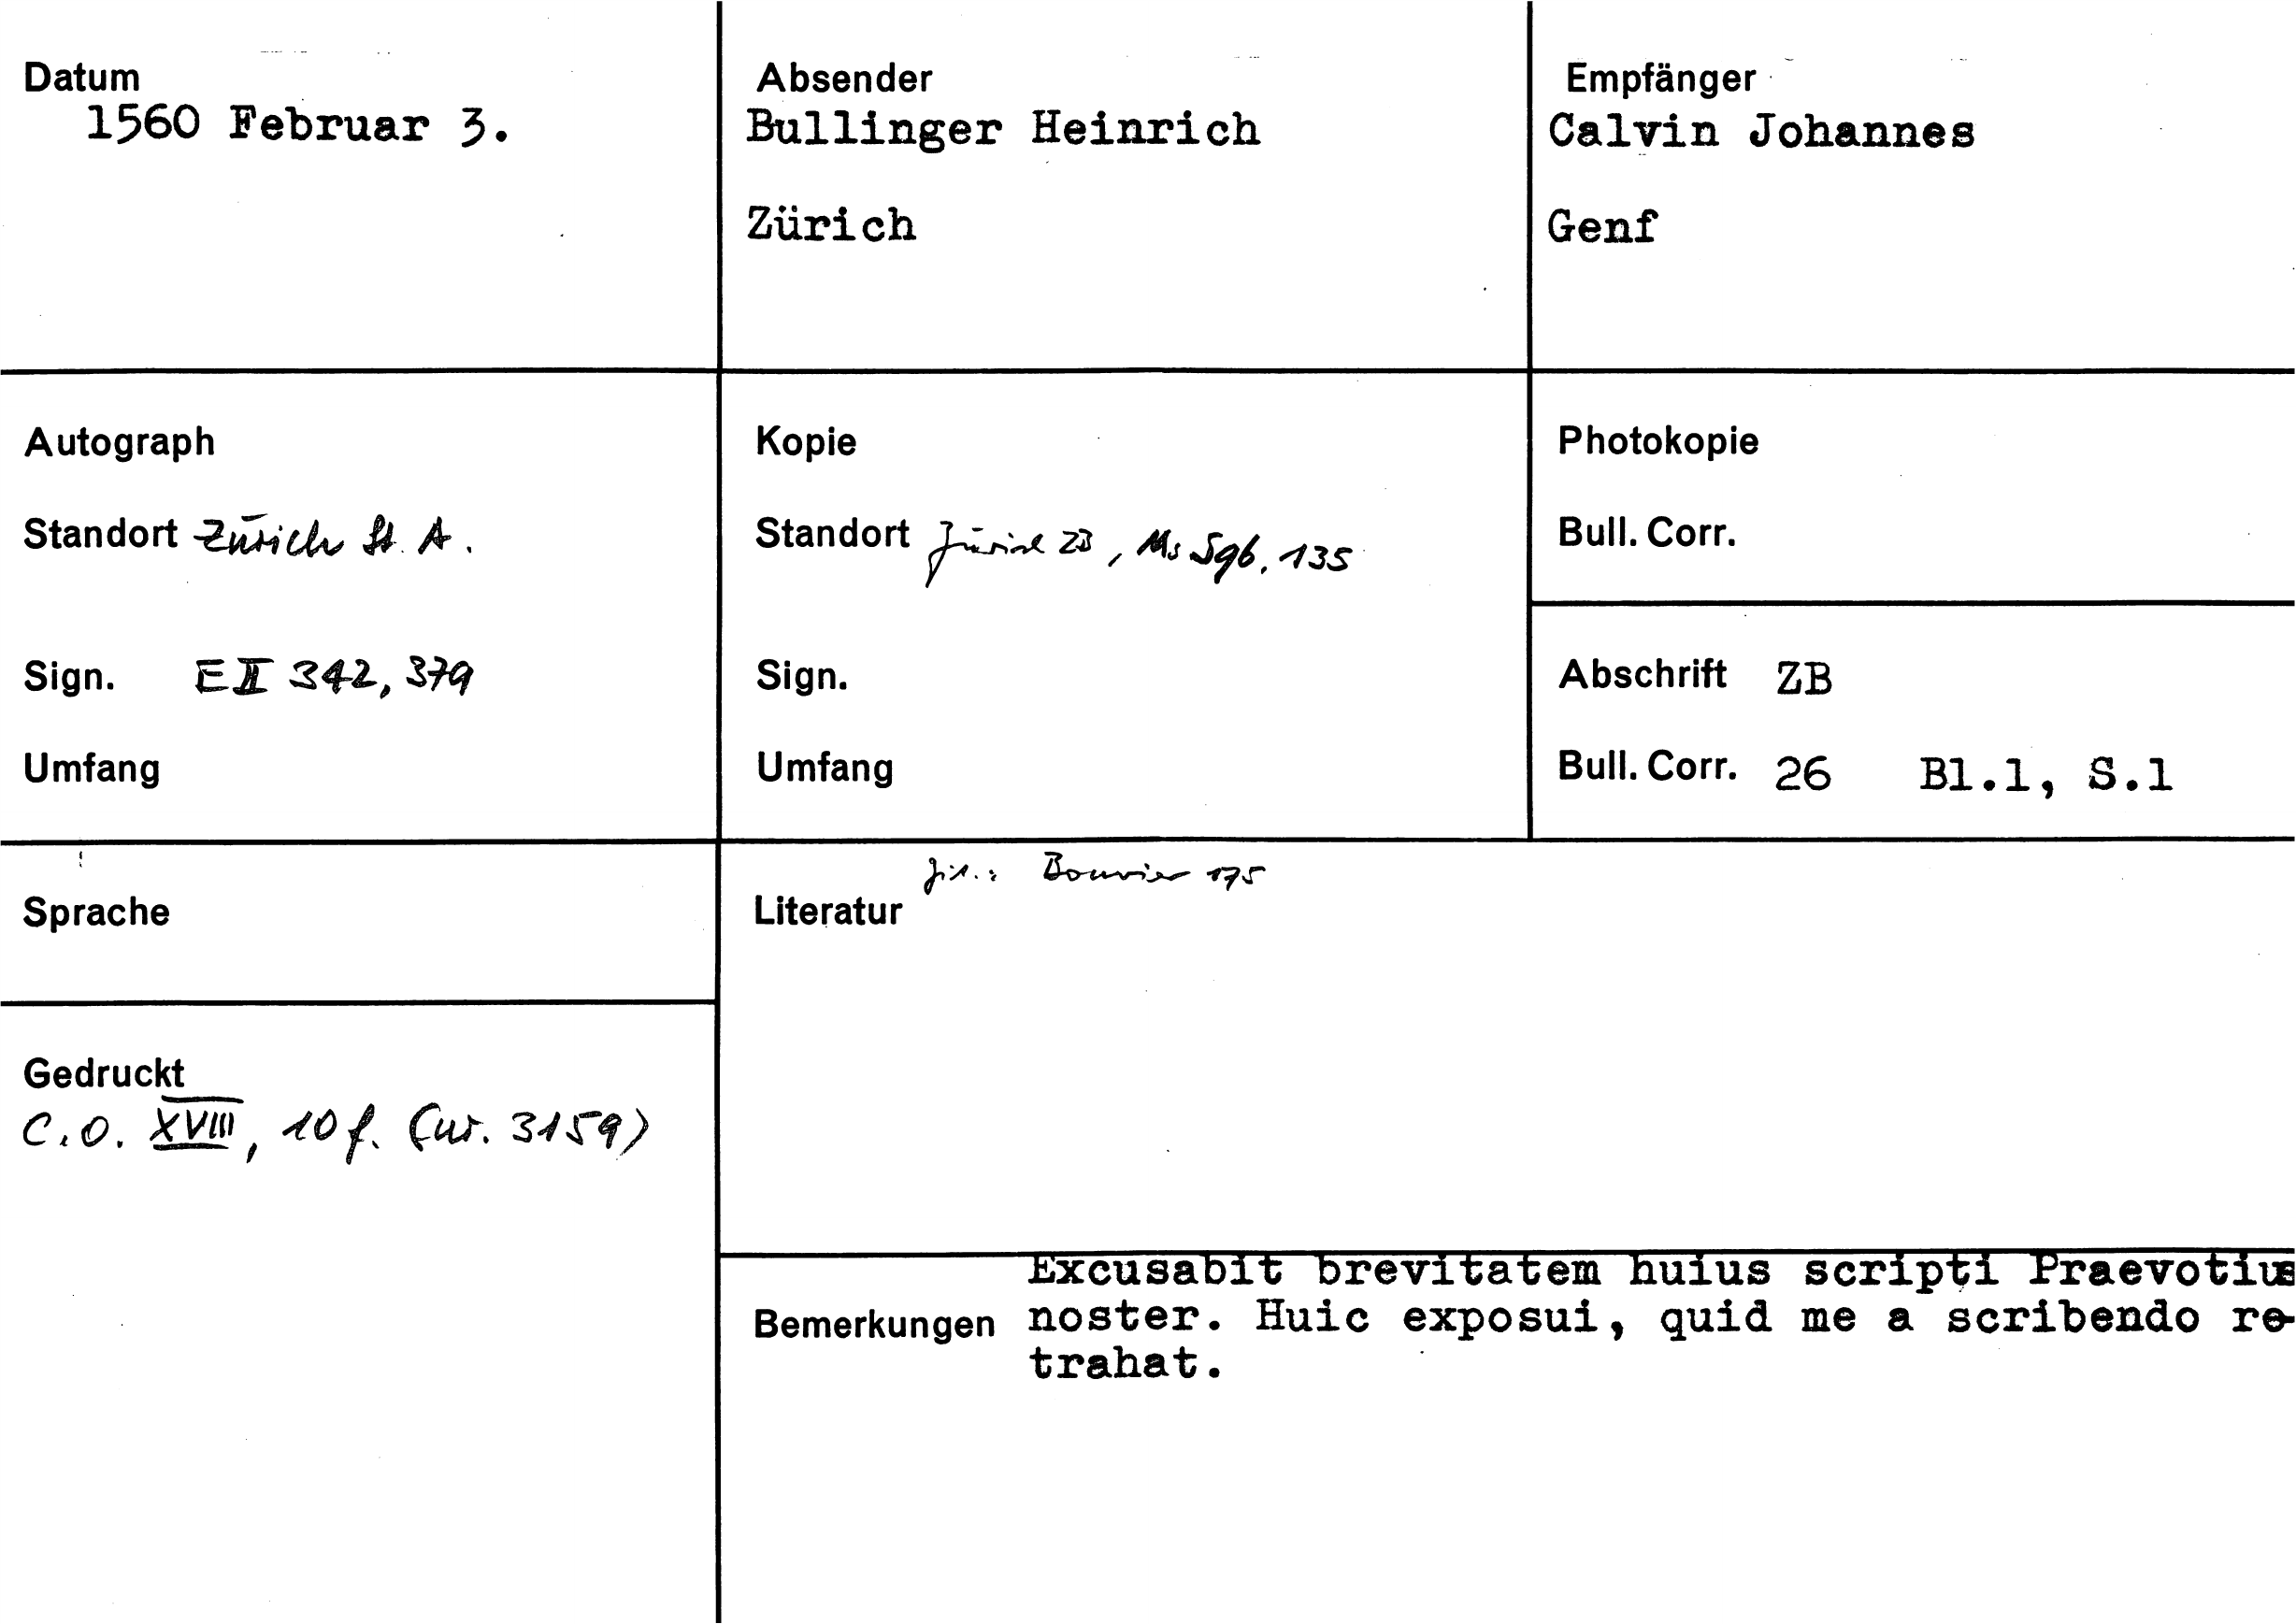 Datum
1560 Februar 3.
Absender
Bullinger Heinrich
Zürich
Empfänger
Calvin Johannes
Genf
Autograph
Standort Zürich St. A.
Sign. E II 342, 379
Umfang
Kopie
Standort Zürich ZB, Ms S 96, 135
Sign.
Umfang
Photokopie
Bull. Corr.
Abschrift ZB
Bull. Corr. 26 Bl.1, S.1
Sprache
Gedruckt
C.O. XVIII, 10 f. (nr. 3159)
Zit.: Bouvier 175
Literatur
Excusabit brevitatem huius scripti Praevotius
Bemerkungen noster. Huic exposui, quid me a scribendo re-
trahat.